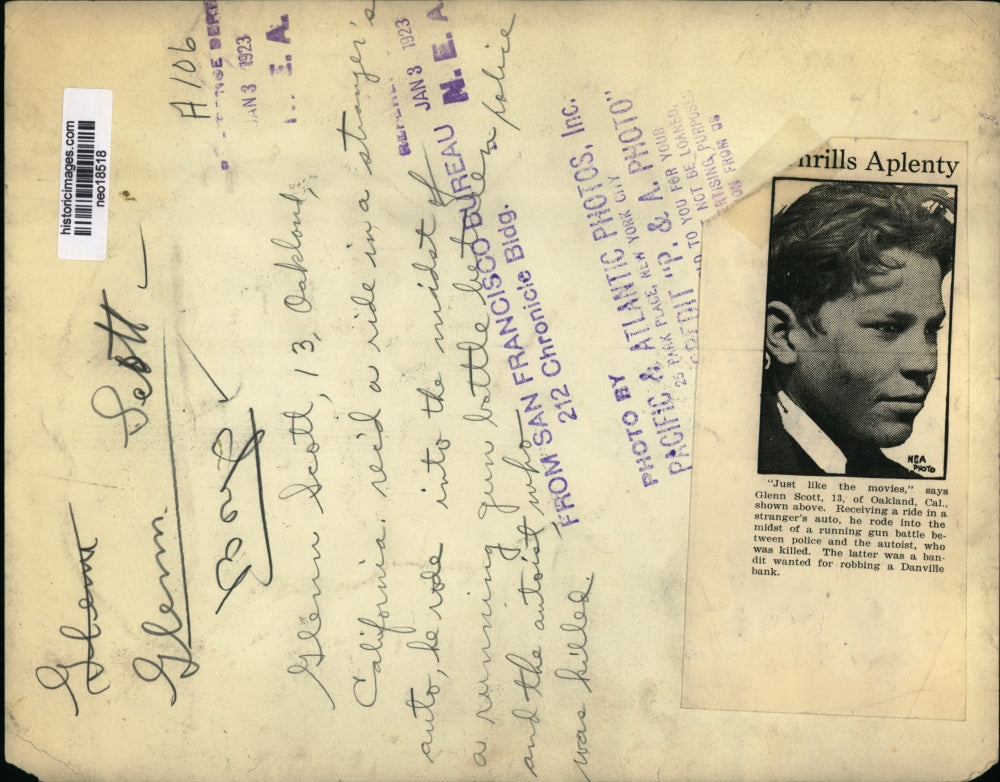 historicimages.com
neo18518
A106
JAN 3 1923
E. A.
JAN 3 1923
N. E. A.
Glenn
Glenn Scott
Boy
Glenn Scott, 13, Oakland,
California. rec'd a ride in a stranger's
auto, he rode into the midst of
a running gun battle between police
and the autoist who
was killed.
FROM SAN FRANCISCO BUREAU
212 Chronicle Bldg.
PHOTO BY
PACIFIC & ATLANTIC PHOTOS, Inc.
25 PARK PLACE, NEW YORK CITY
CREDIT "P. & A. PHOTO"
TO YOU FOR YOUR
NOT BE LOANED,
RTISING PURPOSES
ON FROM US
hrills Aplenty
NEA
PHOTO
"Just like the movies," says
Glenn Scott, 13, of Oakland, Cal.,
shown above. Receiving a ride in a
stranger's auto, he rode into the
midst of a running gun battle be-
tween police and the autoist, who
was killed. The latter was a ban-
dit wanted for robbing a Danville
bank.